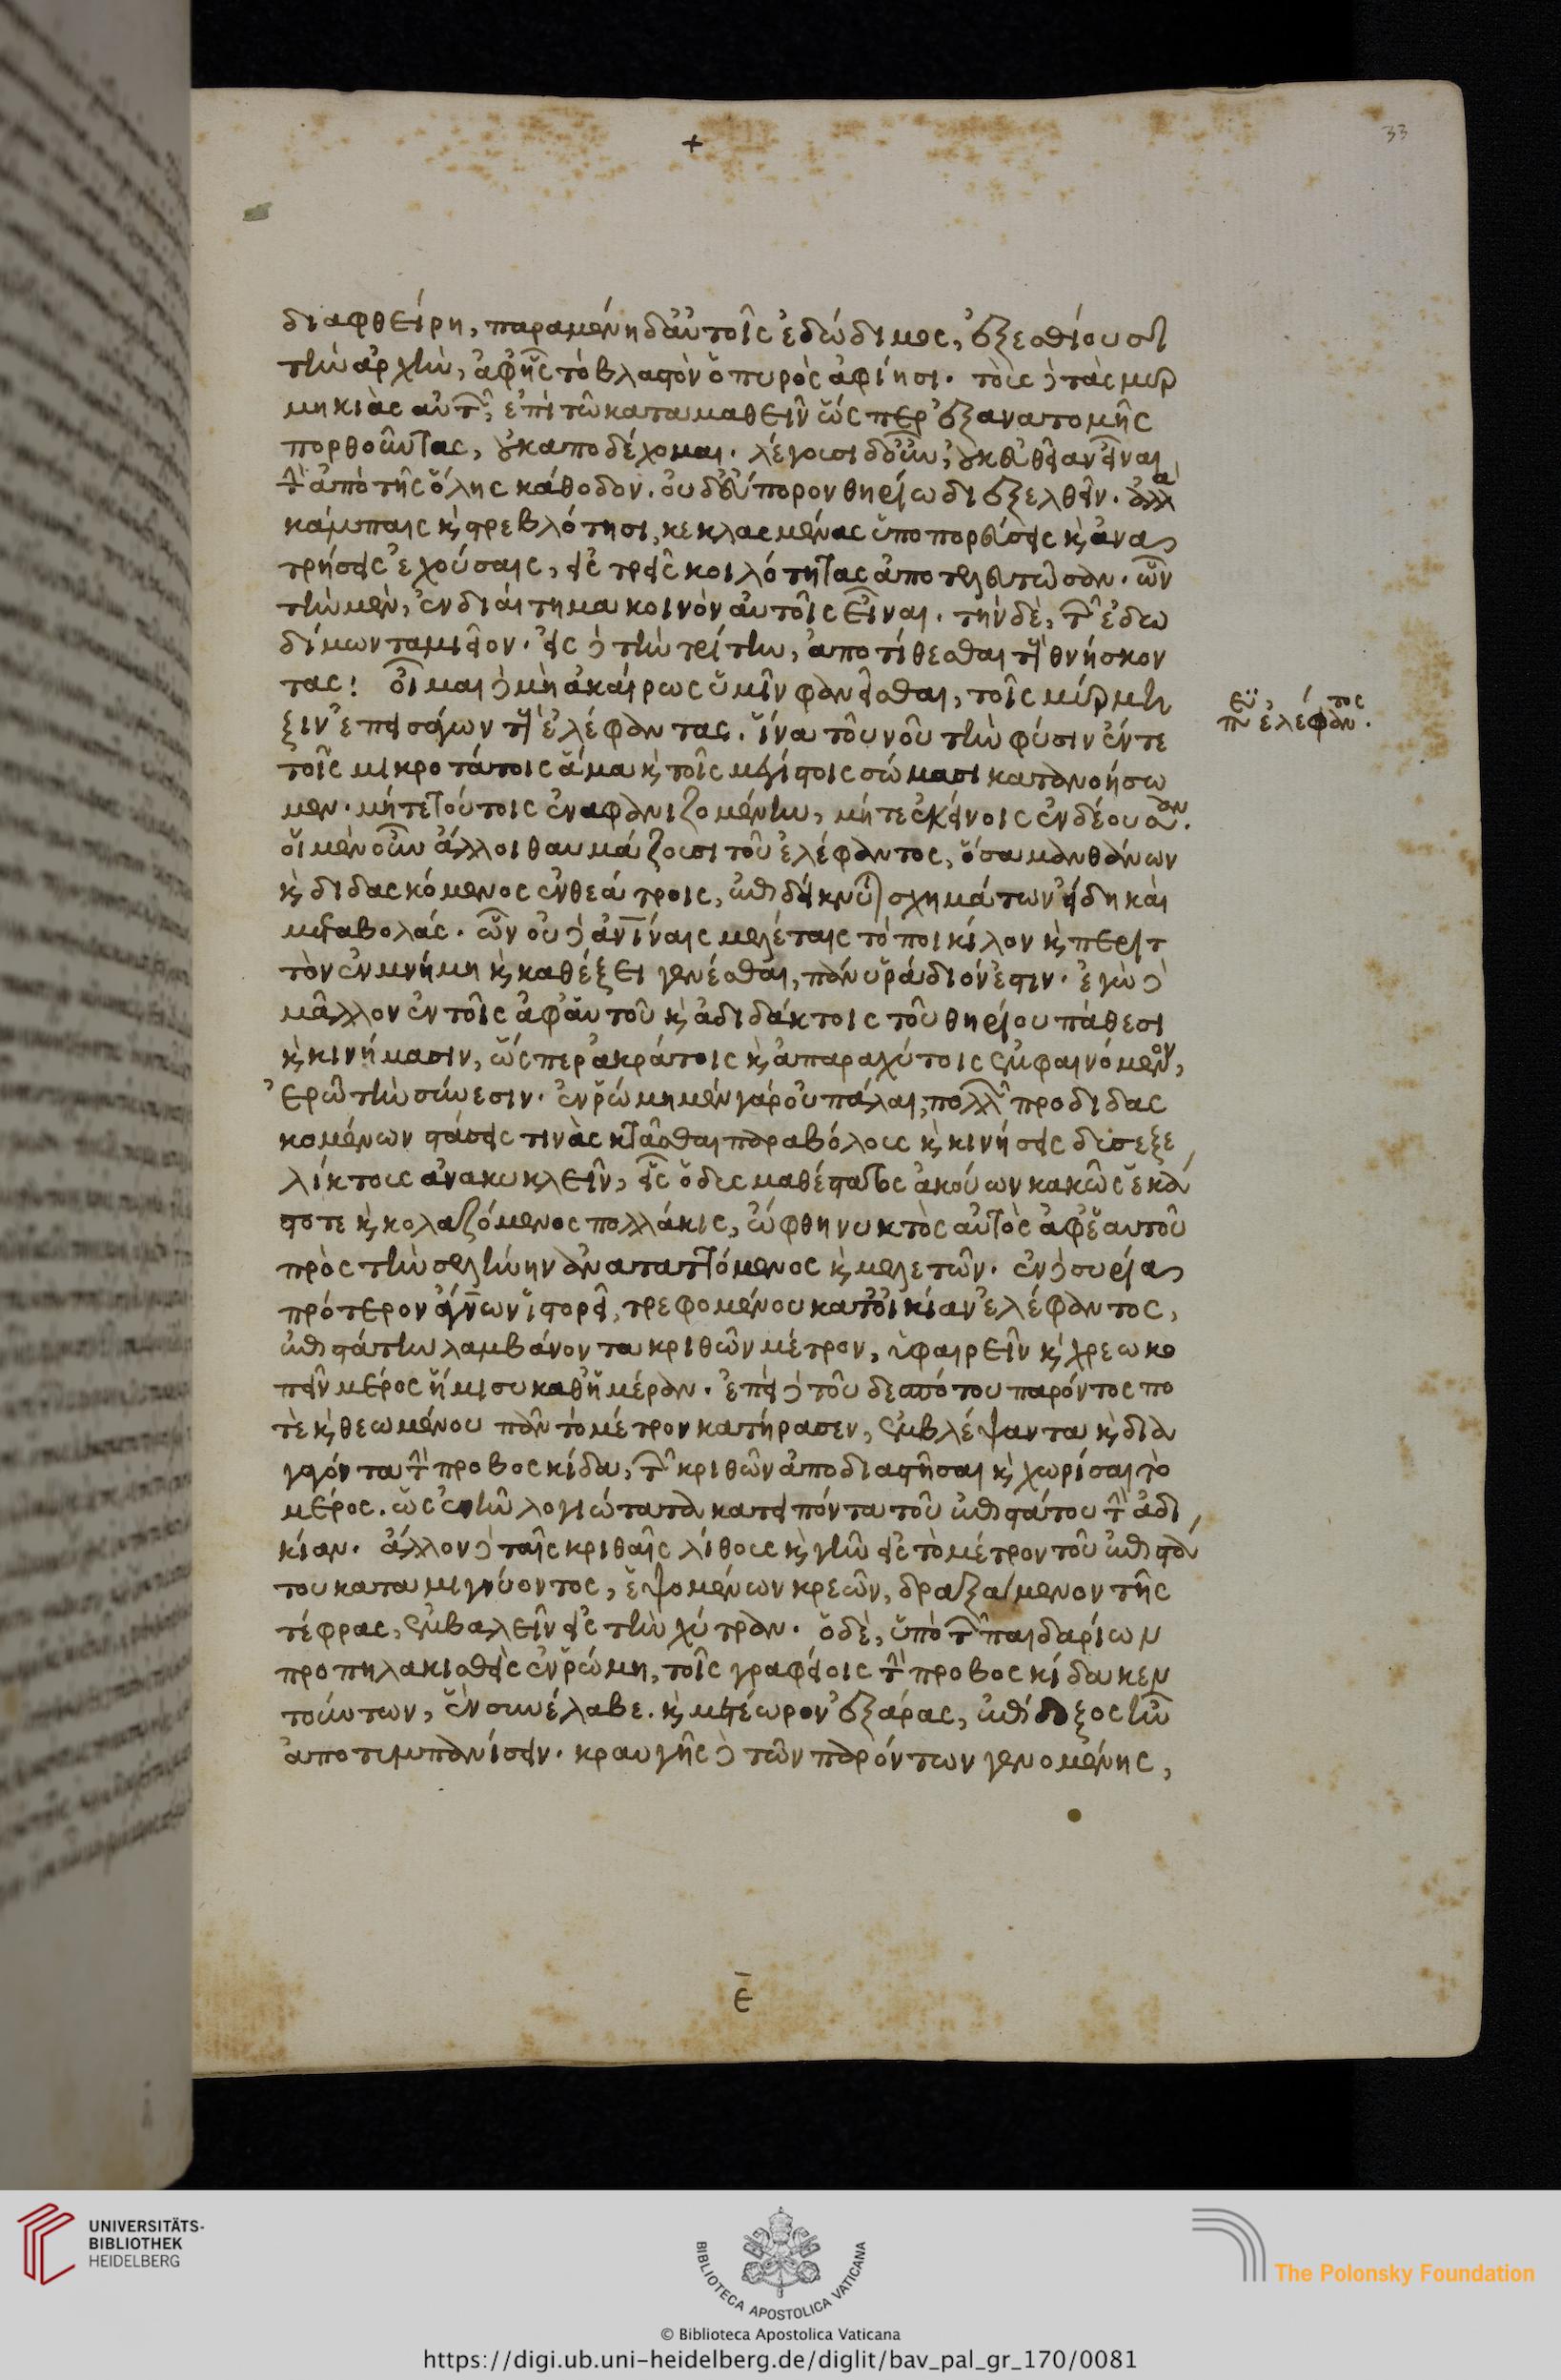 +
33
διαφθείρη, παραμένη δ' αὐτοῖς ἐδώδιμος, ἐξεσθίουσι
τὴν ἀρχὴν, ἀφ' ἧς τὸ βλαστὸν ὁ πυρὸς ἀφίησι. τοὺς δὲ τὰς μυρ
μηκιὰς αὐτῶν, ἐπὶ τῶ καταμαθεῖν ὥσπερ ἐξ ἀνατομῆς
πορθοῦντας, οὐκ ἀποδέχομαι. λέγουσι δ' οὖν, οὐκ εὐθεῖαν εἶναι
τὴν ἀπὸ τῆς ὅλης κάθοδον. οὐδ' εὔπορον θηρίω διεξελθεῖν. ἀλλὰ
καμπαῖς καὶ στρεβλότησι, κεκλασμένας ὑποπορεύσεις καὶ ἀνα
τρήσεις ἐχούσαις, εἰς τρεῖς κοιλότητας ἀποτελευτῶσαν. ὧν
τὴν μὲν, ἐνδιαίτημα κοινὸν αὐτοῖς εἶναι. τὴν δὲ, τῶν ἐδω
δίμων ταμιεῖον. εἰς δὲ τὴν τρίτην, ἀποτίθεσθαι τοὺς θνήσκον
τας! οἶμαι δὲ μὴ ἀκαίρως ὑμῖν φανεῖσθαι, τοῖς μύρμη
ξιν ἐπεισάγων τοὺς ἐλέφαντας. ἵνα τοῦ νοῦ τὴν φύσιν ἔν τε
τοῖς μικροτάτοις ἅμα καὶ τοῖς μεγίστοις σώμασι κατανοήσω
μεν. μήτε τούτοις ἐναφανιζομένην, μήτε ἐκείνοις ἐνδέουσαν.
οἱ μὲν οὖν ἄλλοι θαυμάζουσι τοῦ ἐλέφαντος, ὅσα μανθάνων
καὶ διδασκόμενος ἐν θεάτροις, ἐπιδείκνυται σχημάτων εἴδη καὶ
μεταβολάς. ὧν οὐδὲ ἀνθρωπίναις μελέταις τὸ ποικίλον καὶ περιτ
τὸν ἐν μνήμη καὶ καθέξει γενέσθαι, πάνυ ῥάδιόν ἐστιν. ἐγὼ δὲ
μᾶλλον ἐν τοῖς ἀφ' αὑτοῦ καὶ ἀδιδάκτοις τοῦ θηρίου πάθεσι
καὶ κινήμασιν, ὥσπερ ἀκράτοις καὶ ἀπαραχύτοις ἐμφαινομένην,
ἐρῶ τὴν σύνεσιν. ἐν ῥώμη μὲν γὰρ οὐ πάλαι, πολλῶν προδιδασ
κομένων στάσεις τινὰς ἵστασθαι παραβόλους καὶ κινήσεις δυσεξε
λίκτους ἀνακυκλεῖν, εἷς ὁ δυσμαθέστατος ἀκούων κακῶς ἑκά
στοτε καὶ κολαζόμενος πολλάκις, ὤφθη νυκτὸς αὐτὸς ἀφ' ἑαυτοῦ
πρὸς τὴν σελήνην ἀναταττόμενος καὶ μελετῶν. ἐν δὲ συρία
πρότερον ἅγνων ἱστορεῖ, τρεφομένου κατ' οἰκίαν ἐλέφαντος,
ἐπιστάτην λαμβάνοντα κριθῶν μέτρον, ὑφαιρεῖν καὶ χρεωκο
πεῖν μέρος ἥμισυ καθ' ἡμέραν. ἐπεὶ δὲ τοῦ δεσπότου παρόντος πο
τὲ καὶ θεωμένου πᾶν τὸ μέτρον κατήρασεν, ἐμβλέψαντα καὶ δια
γαγόντα τὴν προβοσκίδα, τῶν κριθῶν ἀποδιαστῆσαι καὶ χωρίσαι τὸ
μέρος. ὡς ἐνῆν λογιώτατα κατειπόντα τοῦ ἐπιστάτου τὴν ἀδι
κίαν. ἄλλον δὲ ταῖς κριθαῖς λίθους καὶ γῆν εἰς τὸ μέτρον τοῦ ἐπιστά
του καταμιγνύοντος, ἑψομένων κρεῶν, δραξάμενον τῆς
τέφρας, ἐμβαλεῖν εἰς τὴν χύτραν. ὁ δὲ, ὑπὸ τῶν παιδαρίων
προπηλακισθεὶς ἐν ῥώμη, τοῖς γραφείοις τὴν προβοσκίδα κεν
τούντων, ἓν συνέλαβε. καὶ μετέωρον ἐξάρας, ἐπίδοξος ἦν
ἀποτυμπανίσειν. κραυγῆς δὲ τῶν παρόντων γενομένης,
περὶ ἐλέφαντος.
ε̅
UNIVERSITÄTS-
BIBLIOTHEK
HEIDELBERG
BIBLIOTECA APOSTOLICA VATICANA
The Polonsky Foundation
© Biblioteca Apostolica Vaticana
https://digi.ub.uni-heidelberg.de/diglit/bav_pal_gr_170/0081